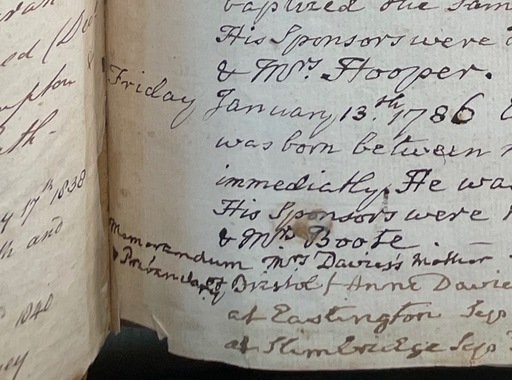 ed
mpton &
ath.
y 17th 1838
h and
1840
ey
baptized the same
His Sponsors were
& Mrs. Hooper.
Friday January 13.th 1786
was born between
immediatly. He was
His Sponsors were
& Mrs. Boote.
Memorandum Mrs Davies's Mother
of Bristol Anne Davie
at Eastington Sep
at Slimbridge Sep